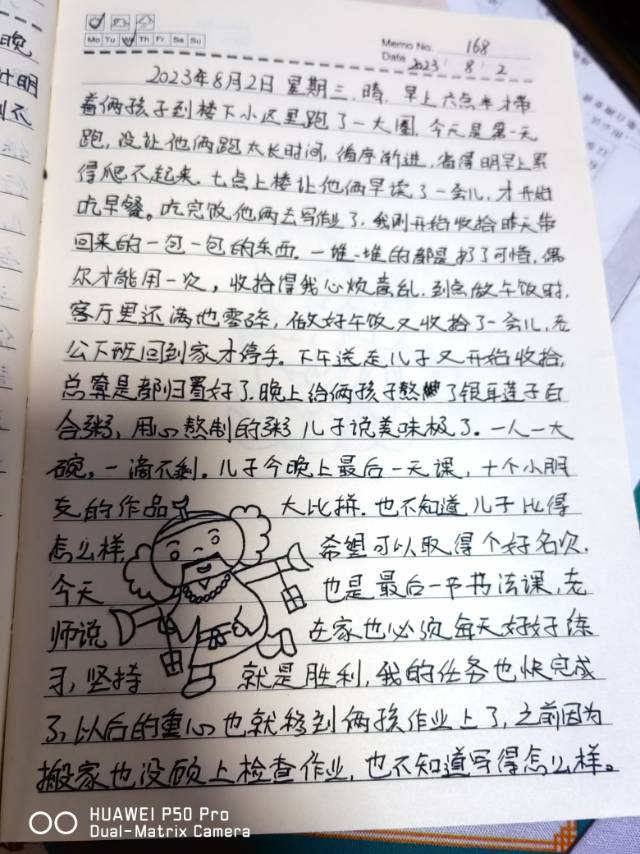 晚
计明
到不
Mo Tu We Th Fr Sa Su
Memo No. 168
Date 2023 / 8 / 2
2023年8月2日 星期三.晴.早上六点半才带
着俩孩子到楼下小区里跑了一大圈.今天是第一天
跑,没让他俩跑太长时间,循序渐进,省得明早上累
得爬不起来.七点上楼让他俩早读了一会儿,才开始
吃早餐。吃完饭他俩去写作业了,我则开始收拾昨天带
回来的一包一包的东西.一堆一堆的都是扔了可惜,偶
尔才能用一次,收拾得我心烦意乱.到急做午饭时,
客厅里还满地零碎,做好午饭又收拾了一会儿,老
公下班回到家才停手.下午送走儿子又开始收拾,
总算是都归置好了.晚上给俩孩子熬了银耳莲子百
合粥,用心熬制的粥儿子说美味极了.一人一大
碗,一滴不剩.儿子今晚上最后一天课,十个小朋
友的作品大比拼.也不知道儿子比得
怎么样 希望可以取得个好名次.
今天 也是最后一节书法课,老
师说 在家也必须每天好好练
习,坚持 就是胜利,我的任务也快完成
了,以后的重心也就移到俩孩作业上了,之前因为
搬家也没顾上检查作业,也不知道写得怎么样。
HUAWEI P50 Pro
Dual-Matrix Camera